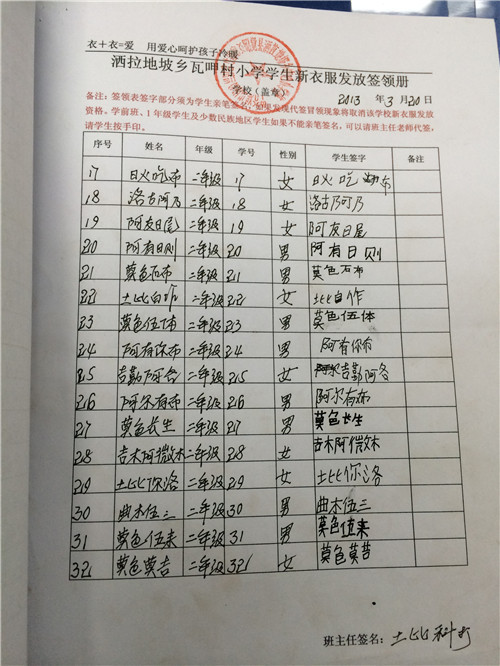 衣+衣=爱 用爱心呵护孩子冷暖
洒拉地坡乡瓦呷村小学学生新衣服发放签领册
学校(盖章)
2013 年 3 月 20 日
备注:签领表签字部分须为学生亲笔签名,如果发现代签冒领现象将取消该学校新衣服发放
资格,学前班、1年级学生及少数民族地区学生如果不能亲笔签名,可以请班主任老师代签,
请学生按手印。
序号 姓名 年级 学号 性别 学生签字 备注
17 日火吃布 二年级 17 女 日火吃 布
18 洛古阿乃 二年级 18 女 洛古阿乃
19 阿友日尾 二年级 19 女 阿友日尾
20 阿有日则 二年级 20 男 阿有日则
21 莫色石布 二年级 21 男 莫色石布
22 土比自作 二年级 22 女 土比自作
23 莫色伍体 二年级 23 男 莫色伍体
24 阿有你布 二年级 24 男 阿有你布
25 吉勒阿各 二年级 25 女 阿尔吉勒阿各
26 阿尔有布 二年级 26 男 阿尔有布
27 莫色长生 二年级 27 男 莫色长生
28 吉木阿微木 二年级 28 女 吉木阿微木
29 土比你洛 二年级 29 女 土比你洛
30 曲木伍三 二年级 30 男 曲木伍三
31 莫色伍来 二年级 31 男 莫色伍来
32 莫色莫吉 二年级 32 女 莫色莫吉
班主任签名:土比科